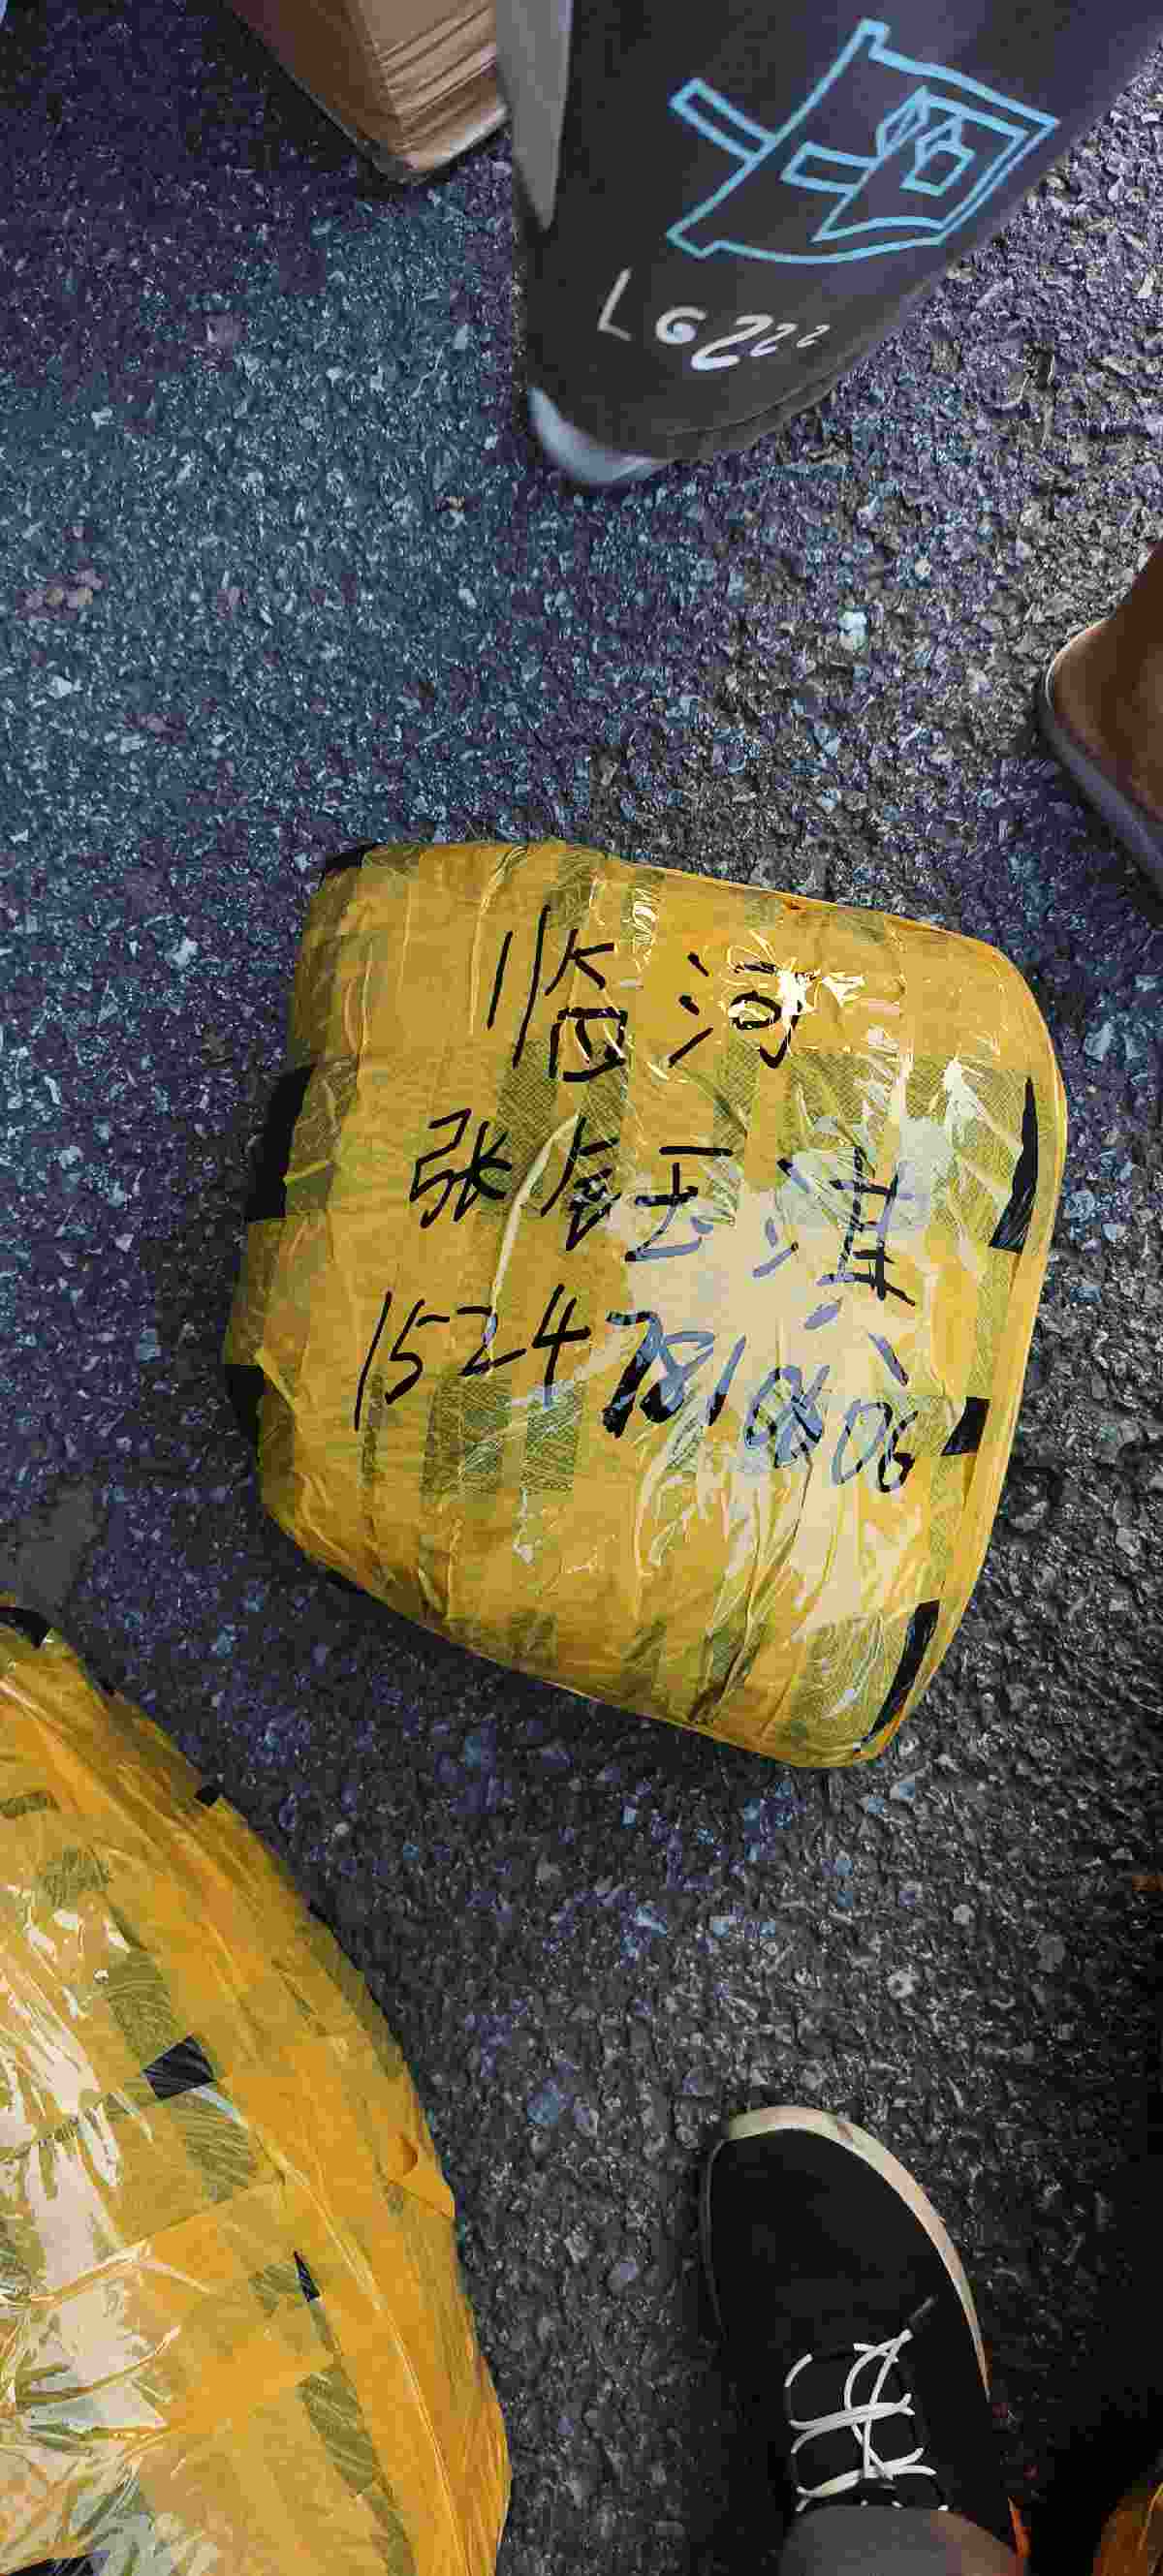 LG222
临河
张
15247810606